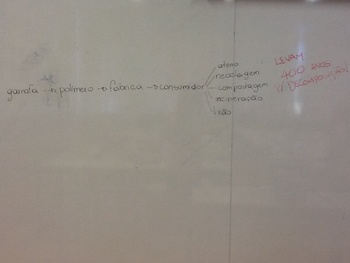 garrafa → polimero → fabrica → consumidor
aterro
reciclagem
compostagem
incineração
lixão
LEVAM
400 anos